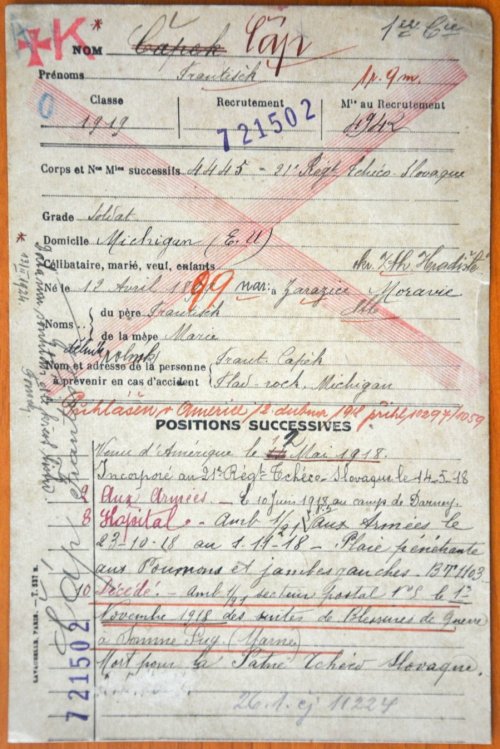 +K*
1ère Cie
NOM Čapek Čáp
Prénoms Frantisek
Classe Recrutement Mle au Recrutement
1919 721502 4942
0
Corps et Nos Mles successifs 4445 - 21e Régt Tchéco-Slovaque
Grade Soldat
Domicile Michigan (E.U)
Célibataire, marié, veuf, enfants
Né le 12 Avril 1899 à Moravie
Noms du père Frantisek
de la mère Marie
Nom et adresse de la personne à prévenir en cas d'accident Frant. Capek
Michigan
Přihlášen v Americe 12 dubna 1918 přihl. 10297/1059
POSITIONS SUCCESSIVES
Venu d'Amérique le 12 Mai 1918.
Incorporé au 21e Régt Tchéco-Slovaque le 14-5-18
2 Aux Armées. - le 10 Juin 1918 au camps de Darney
8 Hôpital. - Amb aux Armées le
23-10-18 au 1-11-18 - Plaie pénétrante
aux Poumons et jambes gauches. BT 1103
10 Décédé. - Amb secteur postal le 1er
Novembre 1918 des suites de Blessures de Guerre
à (Marne)
Mort pour la Patrie Tchéco Slovaque.
26.1. cj 11227
721502
Čáp
LAVAUZELLE, PARIS.